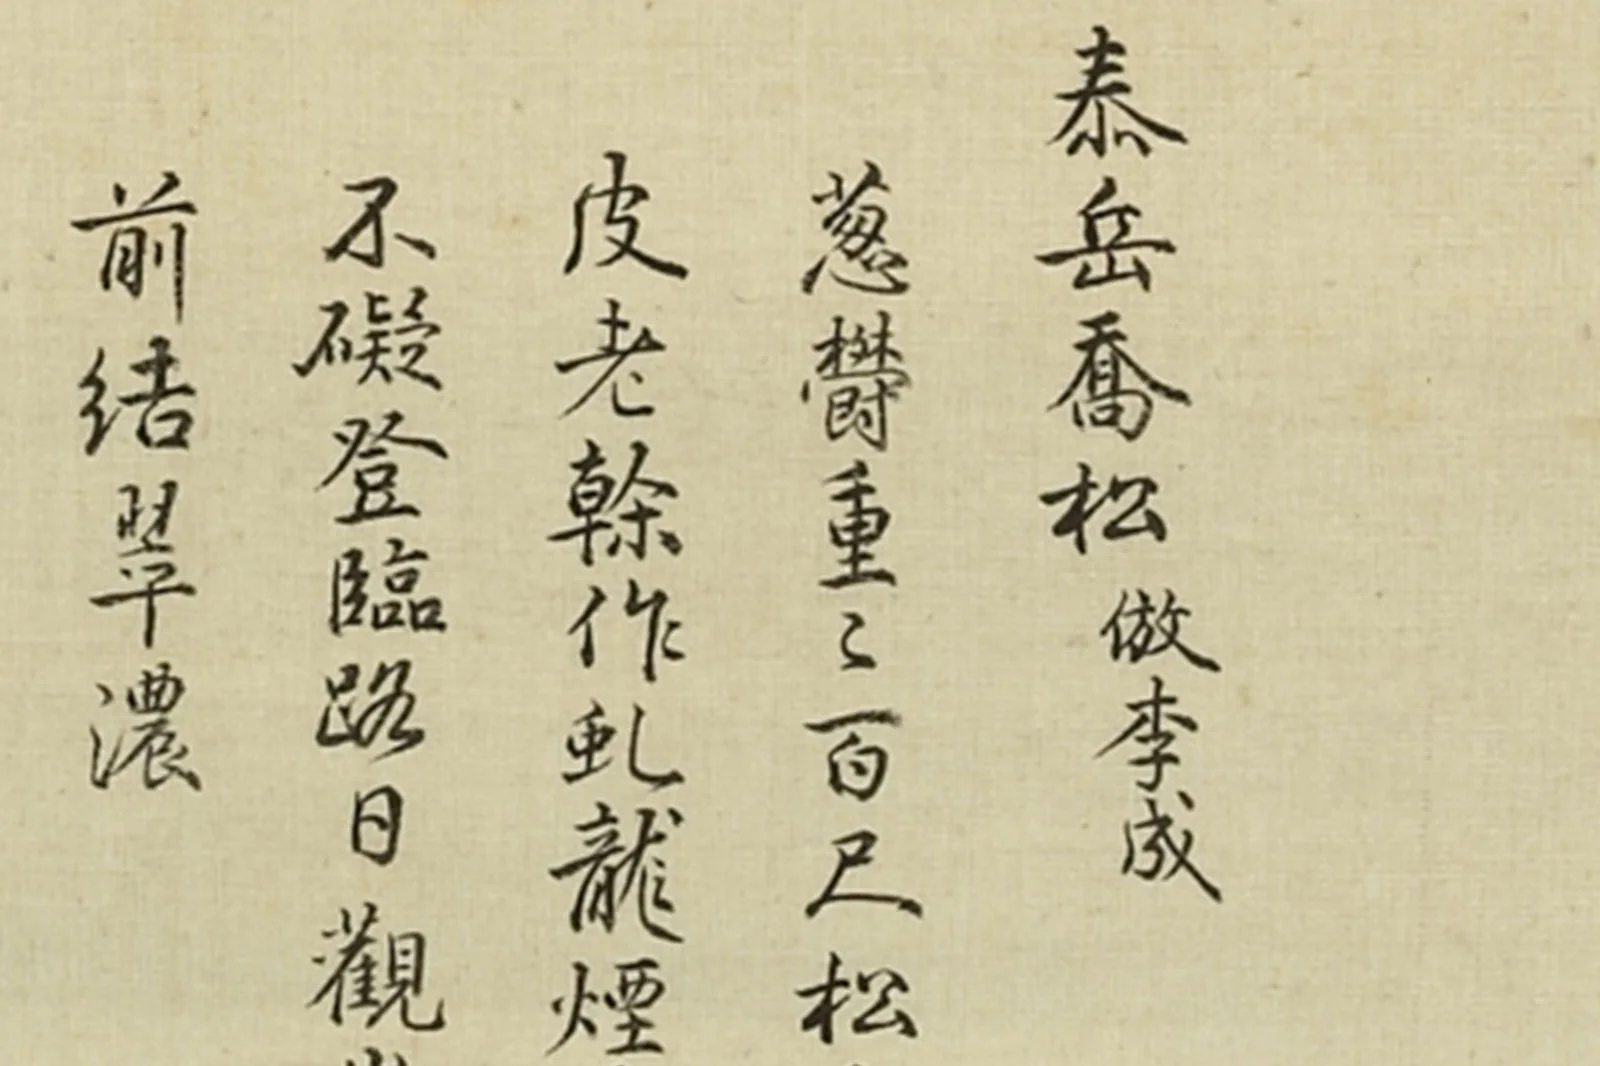 泰岳喬松 倣李成
蔥鬱重〻百尺松
皮老榦作虬龍煙
不礙登臨路日觀
前結翠濃